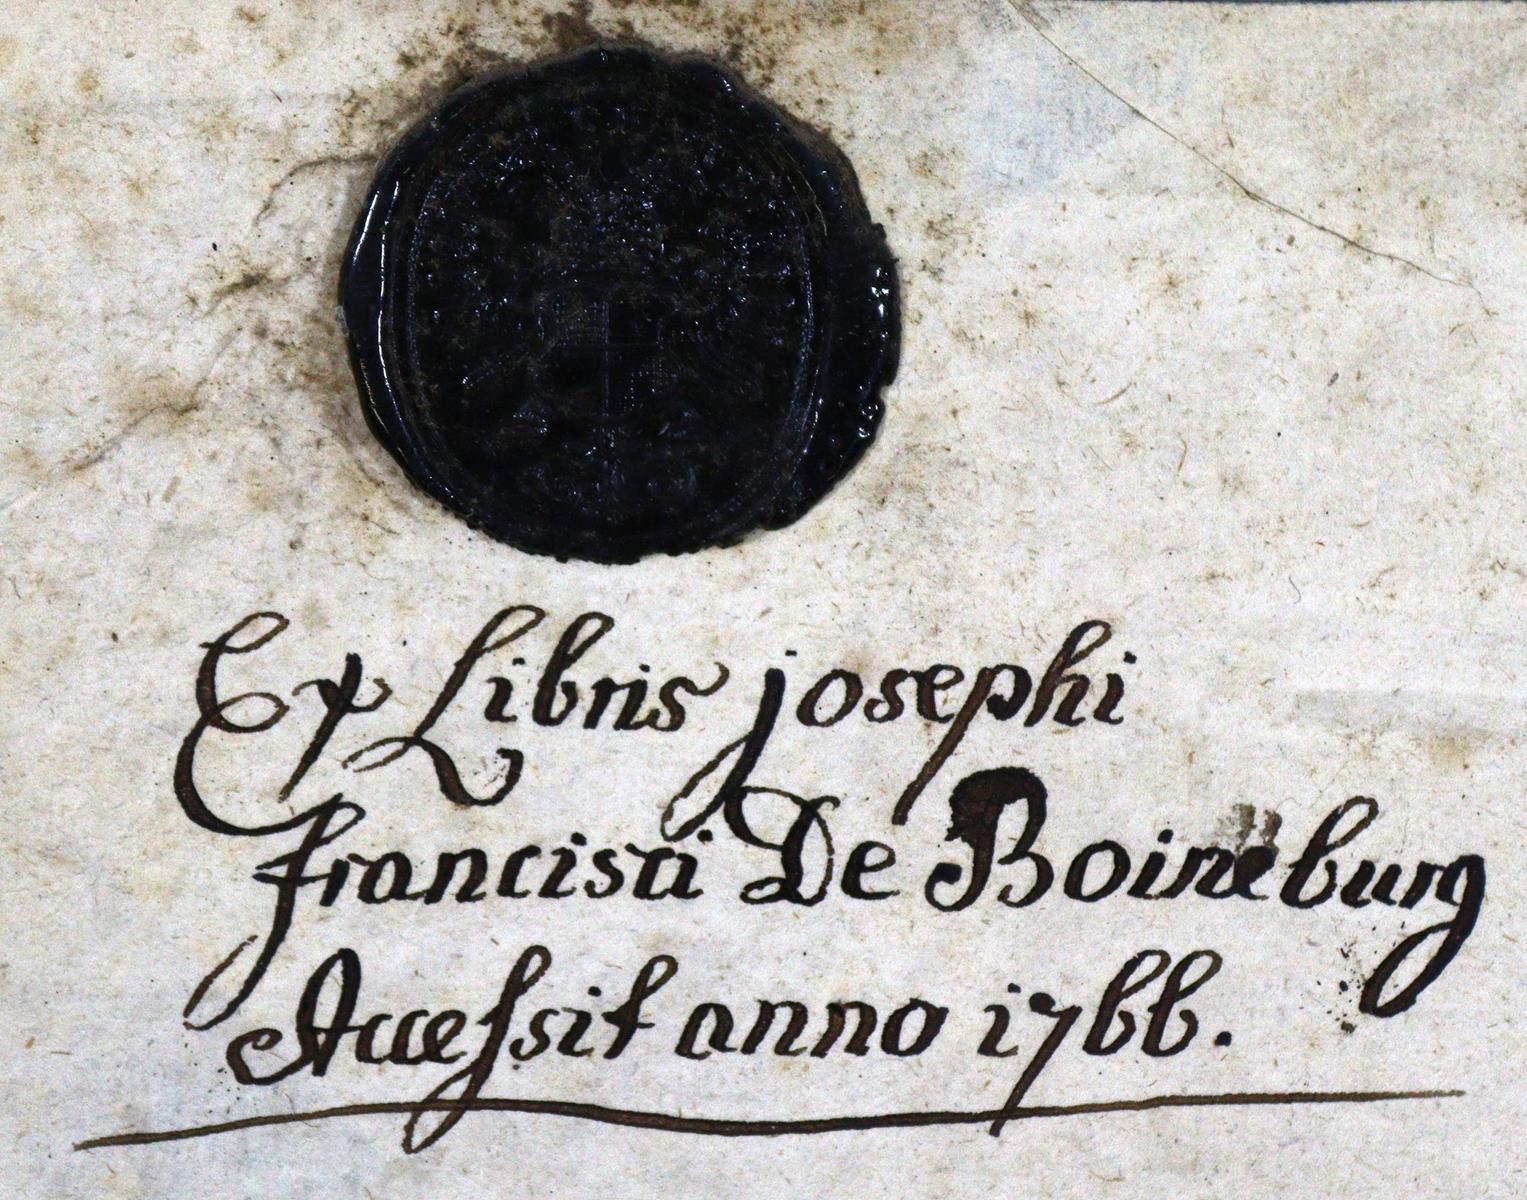 Ex Libris josephi
francisci De Boineburg
Accessit anno 1766.